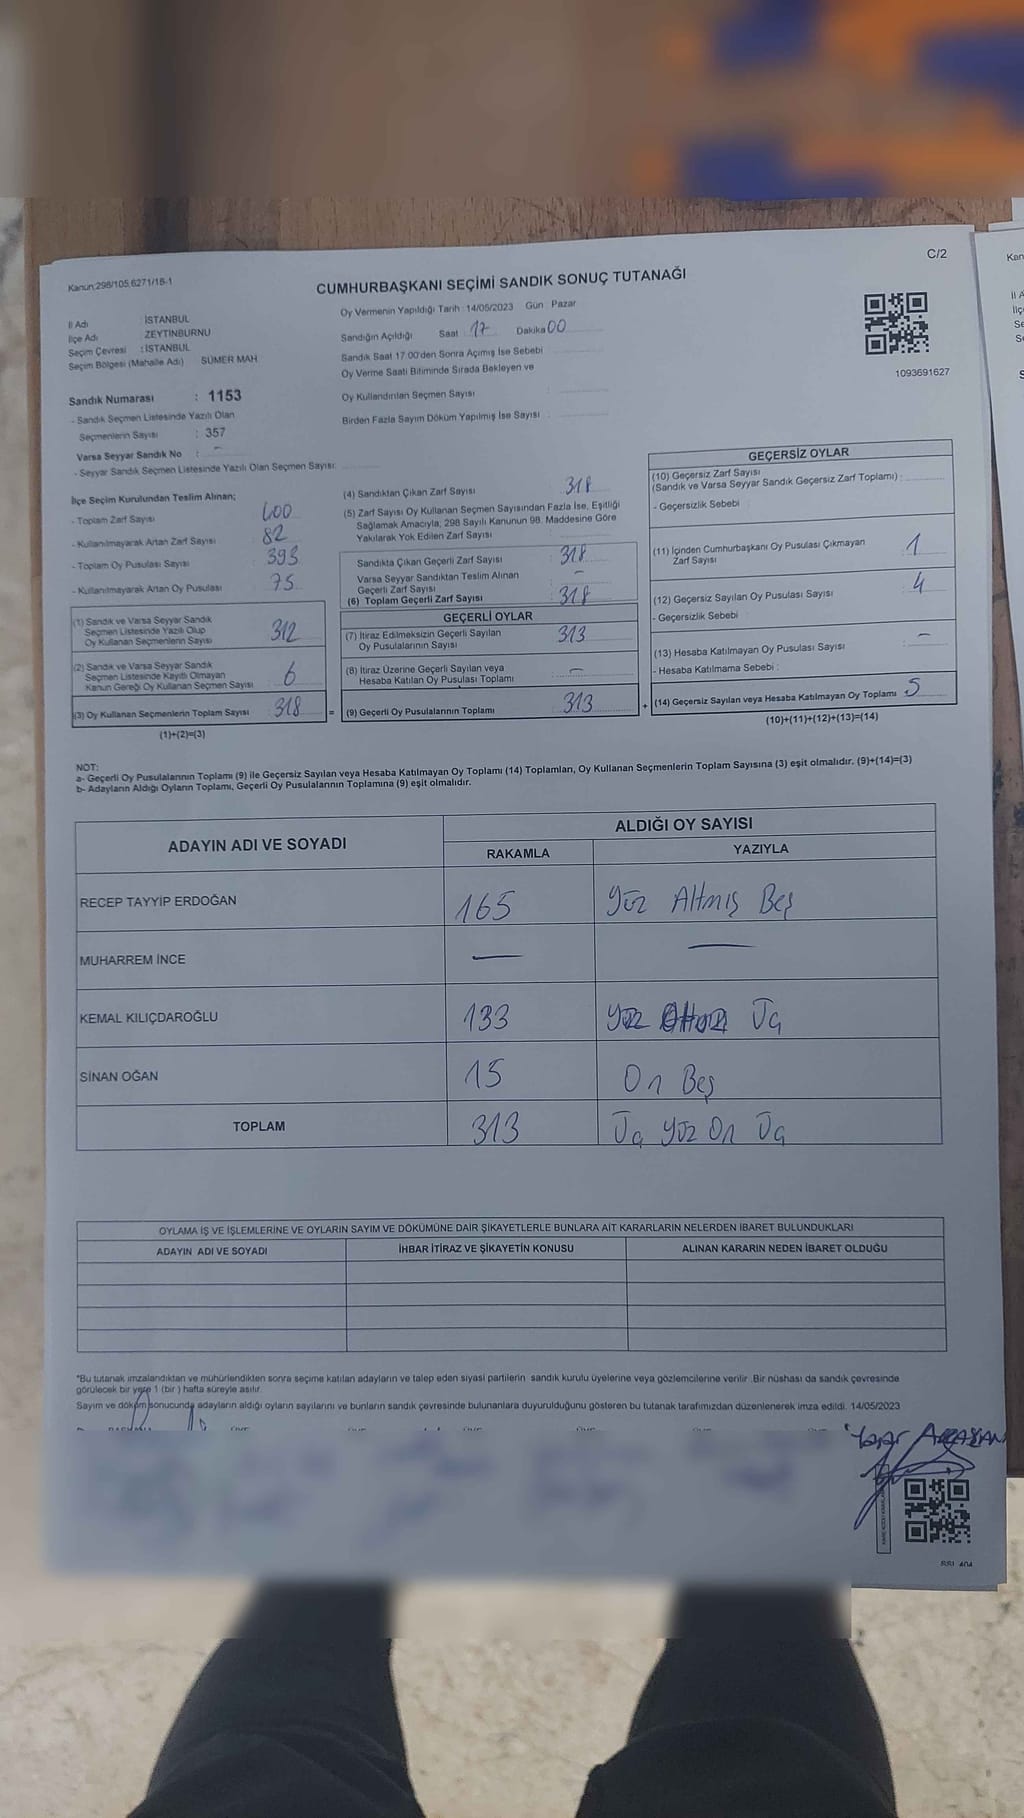 C/2
Kanun:298/105,6271/18-1
CUMHURBAŞKANI SEÇİMİ SANDIK SONUÇ TUTANAĞI
İl Adı : İSTANBUL
İlçe Adı : ZEYTİNBURNU
Seçim Çevresi : İSTANBUL
Seçim Bölgesi (Mahalle Adı) SÜMER MAH.
Oy Vermenin Yapıldığı Tarih : 14/05/2023 Gün : Pazar
Sandığın Açıldığı Saat : 17 Dakika 00
Sandık Saat 17.00'den Sonra Açımış İse Sebebi
Oy Verme Saati Bitiminde Sırada Bekleyen ve
Oy Kullandırılan Seçmen Sayısı :
Birden Fazla Sayım Döküm Yapılmış İse Sayısı :
1093691627
Sandık Numarası : 1153
- Sandık Seçmen Listesinde Yazılı Olan
Seçmenlerin Sayısı : 357
Varsa Seyyar Sandık No : -
- Seyyar Sandık Seçmen Listesinde Yazılı Olan Seçmen Sayısı:
İlçe Seçim Kurulundan Teslim Alınan;
- Toplam Zarf Sayısı 400
- Kullanılmayarak Artan Zarf Sayısı 82
- Toplam Oy Pusulası Sayısı 393
- Kullanılmayarak Artan Oy Pusulası 75
(1) Sandık ve Varsa Seyyar Sandık
Seçmen Listesinde Yazılı Olup
Oy Kullanan Seçmenlerin Sayısı 312
(2) Sandık ve Varsa Seyyar Sandık
Seçmen Listesinde Kayıtlı Olmayan
Kanun Gereği Oy Kullanan Seçmen Sayısı 6
(3) Oy Kullanan Seçmenlerin Toplam Sayısı 318 =
(1)+(2)=(3)
(4) Sandıktan Çıkan Zarf Sayısı : 318
(5) Zarf Sayısı Oy Kullanan Seçmen Sayısından Fazla İse, Eşitliği
Sağlamak Amacıyla; 298 Sayılı Kanunun 98. Maddesine Göre
Yakılarak Yok Edilen Zarf Sayısı :
Sandıkta Çıkan Geçerli Zarf Sayısı : 318
Varsa Seyyar Sandıktan Teslim Alınan
Geçerli Zarf Sayısı : -
(6) Toplam Geçerli Zarf Sayısı : 318
GEÇERLİ OYLAR
(7) İtiraz Edilmeksizin Geçerli Sayılan
Oy Pusulalarının Sayısı : 313
(8) İtiraz Üzerine Geçerli Sayılan veya
Hesaba Katılan Oy Pusulası Toplamı : -
(9) Geçerli Oy Pusulalarının Toplamı : 313 +
GEÇERSİZ OYLAR
(10) Geçersiz Zarf Sayısı
(Sandık ve Varsa Seyyar Sandık Geçersiz Zarf Toplamı) :
- Geçersizlik Sebebi :
(11) İçinden Cumhurbaşkanı Oy Pusulası Çıkmayan
Zarf Sayısı : 1
(12) Geçersiz Sayılan Oy Pusulası Sayısı : 4
- Geçersizlik Sebebi :
(13) Hesaba Katılmayan Oy Pusulası Sayısı : -
- Hesaba Katılmama Sebebi :
(14) Geçersiz Sayılan veya Hesaba Katılmayan Oy Toplamı : 5
(10)+(11)+(12)+(13)=(14)
NOT:
a- Geçerli Oy Pusulalarının Toplamı (9) ile Geçersiz Sayılan veya Hesaba Katılmayan Oy Toplamı (14) Toplamları, Oy Kullanan Seçmenlerin Toplam Sayısına (3) eşit olmalıdır. (9)+(14)=(3)
b- Adayların Aldığı Oyların Toplamı, Geçerli Oy Pusulalarının Toplamına (9) eşit olmalıdır.
ADAYIN ADI VE SOYADI ALDIĞI OY SAYISI
RAKAMLA YAZIYLA
RECEP TAYYİP ERDOĞAN 165 Yüz Altmış Beş
MUHARREM İNCE — —
KEMAL KILIÇDAROĞLU 133 Yüz Otuz Üç
SİNAN OĞAN 15 On Beş
TOPLAM 313 Üç Yüz On Üç
OYLAMA İŞ VE İŞLEMLERİNE VE OYLARIN SAYIM VE DÖKÜMÜNE DAİR ŞİKAYETLERLE BUNLARA AİT KARARLARIN NELERDEN İBARET BULUNDUKLARI
ADAYIN ADI VE SOYADI İHBAR İTİRAZ VE ŞİKAYETİN KONUSU ALINAN KARARIN NEDEN İBARET OLDUĞU
*Bu tutanak imzalandıktan ve mühürlendikten sonra seçime katılan adayların ve talep eden siyasi partilerin sandık kurulu üyelerine veya gözlemcilerine verilir .Bir nüshası da sandık çevresinde
görülecek bir yere 1 (bir ) hafta süreyle asılır.
Sayım ve döküm sonucunda adayların aldığı oyların sayılarını ve bunların sandık çevresinde bulunanlara duyurulduğunu gösteren bu tutanak tarafımızdan düzenlenerek imza edildi. 14/05/2023